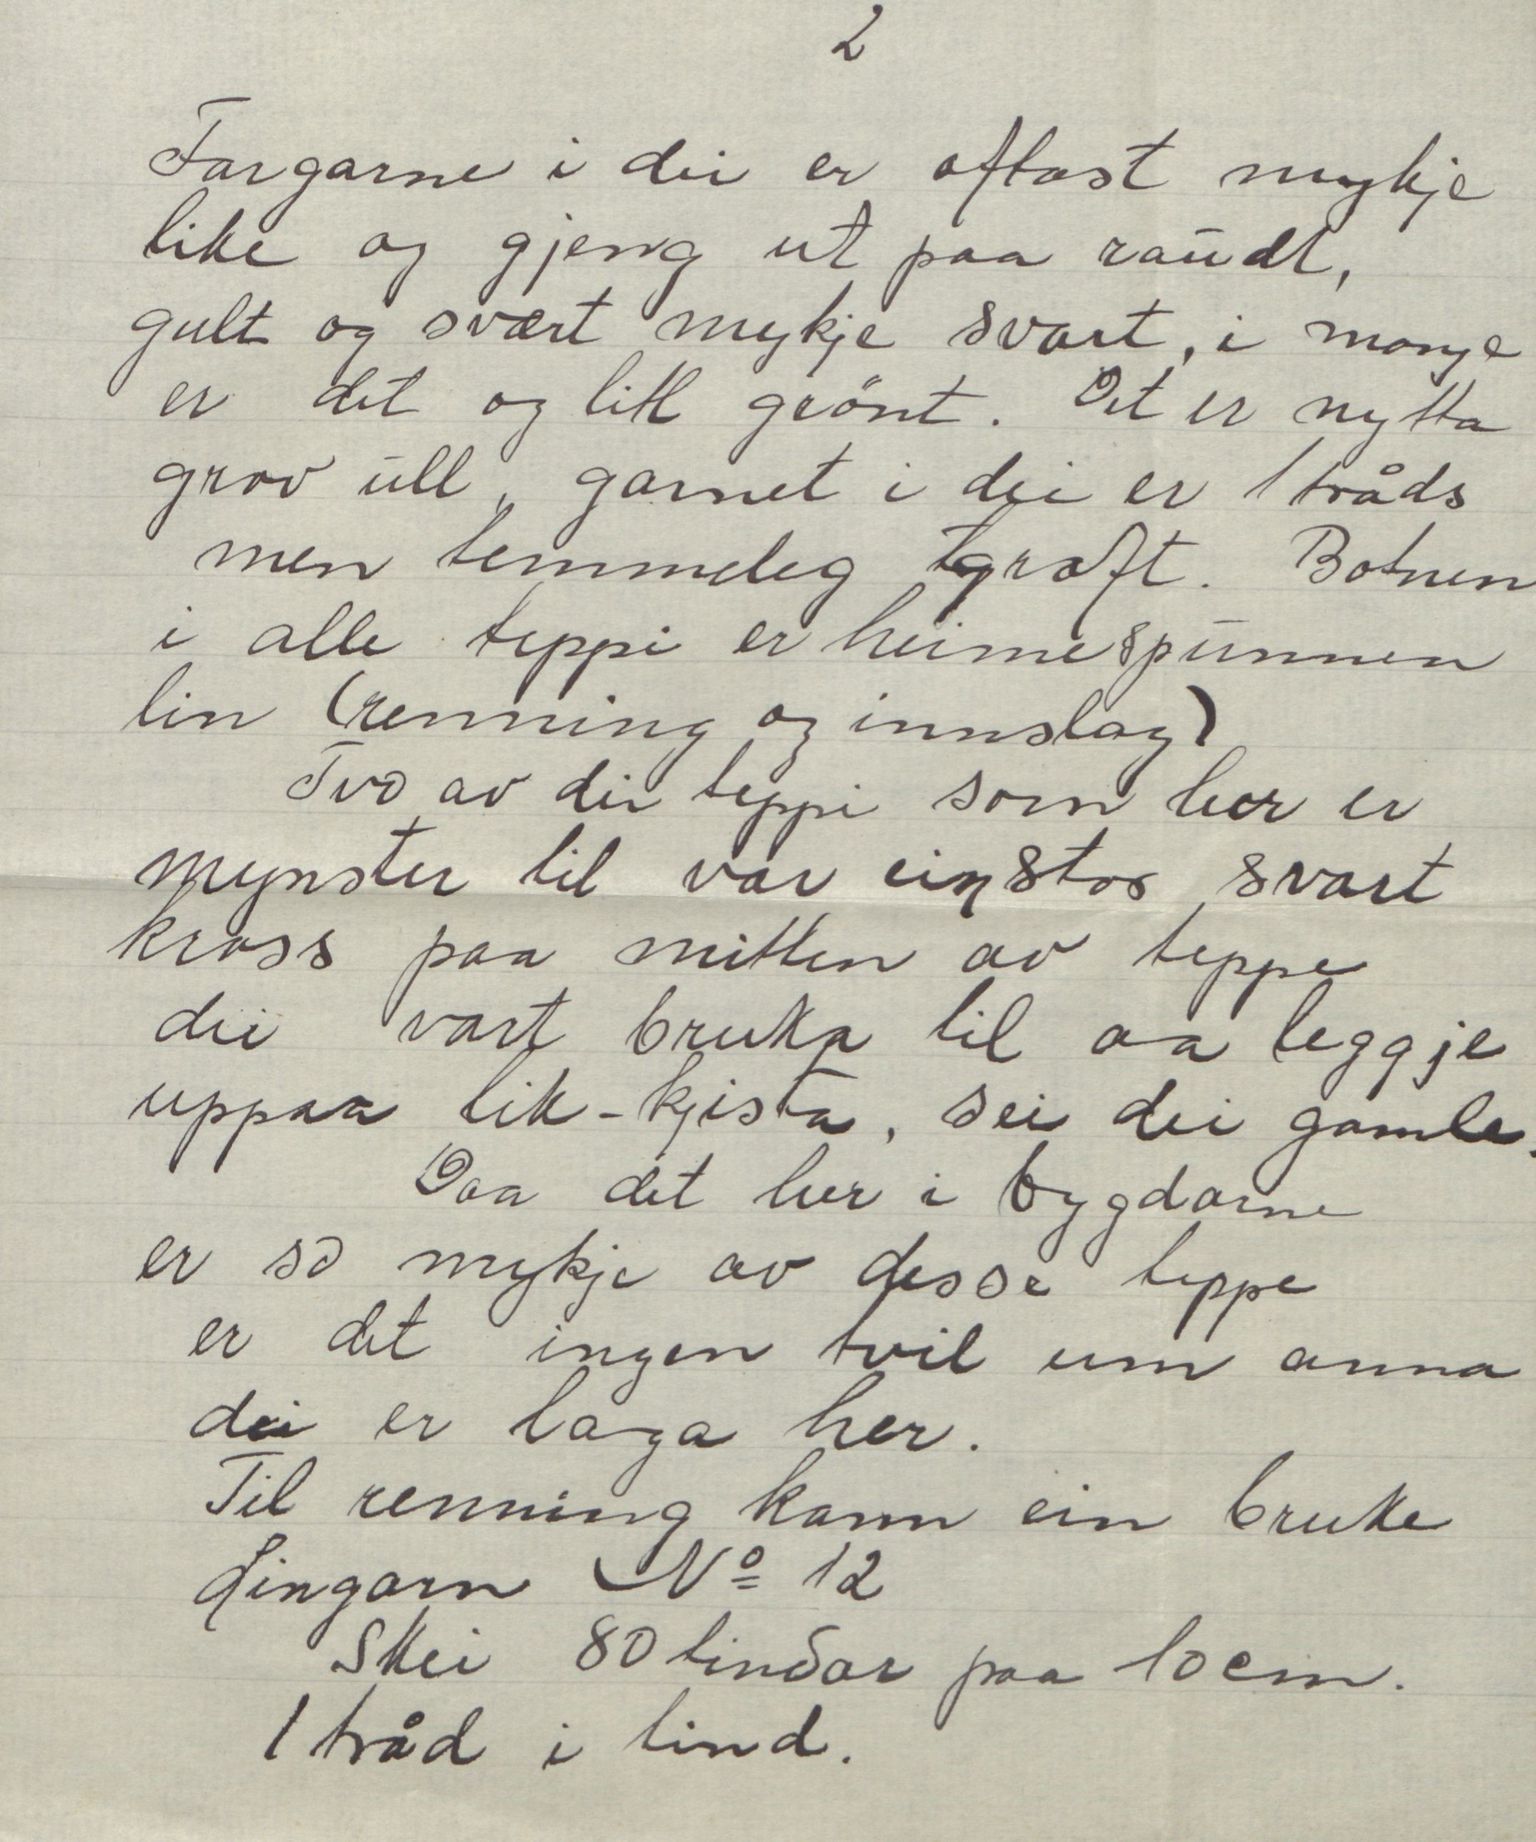 2
Fargarne i dei er oftast mykje
like og gjeng ut paa raudt,
gult og svært mykje svart, i mange
er det og litt grönt. Det er nytta
grov ull, garnet i dei er 1 tråds
men temmeleg graft. Botnen
i alle teppi er heimespunnen
lin (renning og innslag)
Tvo av dei teppi som her er
mynster til var ein stor svart
kross paa mitten av teppe
dei vart bruka til aa leggje
uppaa lik-kjista, sei dei gamle.
Daa det her i bygdarne
er so mykje av desse teppe
er det ingen tvil um anna
dei er laga her.
Til renning kann ein bruke
Lingarn No 12
Skei 80 tindar paa 10 cm.
1 tråd i tind.